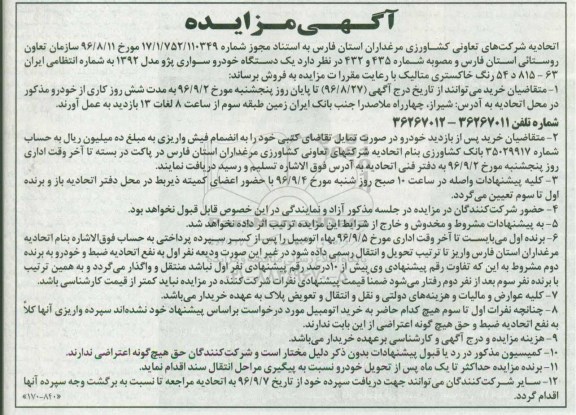 آگهی مزایده
اتحادیه شرکت‌های تعاونی کشاورزی مرغداران استان فارس به استناد مجوز شماره ۱۷/۱/۷۵۲/۱۱۰۳۴۹ مورخ ۹۶/۸/۱۱ سازمان تعاون
روستائی استان فارس و مصوبه شماره ۴۳۵ و ۴۳۲ در نظر دارد یک دستگاه خودرو سواری پژو مدل ۱۳۹۲ به شماره انتظامی ایران
۶۳ - ۸۱۵ د ۵۴ رنگ خاکستری متالیک با رعایت مقررات مزایده به فروش برساند:
۱- متقاضیان خرید می‌توانند از تاریخ درج آگهی (۹۶/۸/۲۷) تا پایان روز پنجشنبه مورخ ۹۶/۹/۲ به مدت شش روز کاری از خودرو مذکور
در محل اتحادیه به آدرس: شیراز، چهارراه ملاصدرا جنب بانک ایران زمین طبقه سوم از ساعت ۸ لغات ۱۳ بازدید به عمل آورند.
شماره تلفن ۳۶۲۶۷۰۱۱ - ۳۶۲۶۷۰۱۲
۲- متقاضیان خرید پس از بازدید خودرو در صورت تمایل تقاضای کتبی خود را به انضمام فیش واریزی به مبلغ ده میلیون ریال به حساب
شماره ۳۵۰۲۹۹۱۷ بانک کشاورزی بنام اتحادیه شرکتهای تعاونی کشاورزی مرغداران استان فارس در پاکت در بسته تا آخر وقت اداری
روز پنجشنبه مورخ ۹۶/۹/۲ به دفتر فنی اتحادیه به آدرس فوق الاشاره تسلیم و رسید دریافت نمایند.
۳- کلیه پیشنهادات واصله در ساعت ۱۰ صبح روز شنبه مورخ ۹۶/۹/۴ با حضور اعضای کمیته ذیربط در محل دفتر اتحادیه باز و برنده
اول تا سوم تعیین می‌گردد.
۴- حضور شرکت‌کنندگان در مزایده در جلسه مذکور آزاد و نمایندگی در این خصوص قابل قبول نخواهد بود.
۵- به پیشنهادات مشروط و مخدوش و خارج از شرایط این مزایده ترتیب اثر داده نخواهد شد.
۶- برنده اول می‌بایست تا آخر وقت اداری مورخ ۹۶/۹/۵ بهاء اتومبیل را پس از کسر سپرده پرداختی به حساب فوق‌الاشاره بنام اتحادیه
مرغداران استان فارس واریز تا ترتیب تحویل و انتقال رسمی داده شود در غیر این صورت ودیعه نفر اول به نفع اتحادیه ضبط و خودرو به برنده
دوم مشروط به این که تفاوت رقم پیشنهادی وی بیش از ۱۰درصد رقم پیشنهادی نفر اول نباشد منتقل و واگذار می‌گردد و به همین ترتیب
با برنده نفر سوم بعد از نفر دوم رفتار می‌شود ضمنا قیمت پیشنهادی نفرات شرکت‌کننده در مزایده نباید کمتر از قیمت کارشناسی باشد.
۷- کلیه عوارض و مالیات و هزینه‌های دولتی و نقل و انتقال و تعویض پلاک به عهده خریدار می‌باشد.
۸- چنانچه نفرات اول تا سوم هیچ کدام حاضر به خرید اتومبیل مورد درخواست براساس پیشنهاد خود نشده‌اند سپرده واریزی آنها کلاً
به نفع اتحادیه ضبط و حق هیچ گونه اعتراضی از این بابت ندارند.
۹- هزینه مزایده و درج آگهی و کارشناسی برعهده خریدار می‌باشد.
۱۰- کمیسیون مذکور در رد یا قبول پیشنهادات بدون ذکر دلیل مختار است و شرکت‌کنندگان حق هیچ‌گونه اعتراضی ندارند.
۱۱- برنده مزایده حداکثر تا یک ماه پس از تحویل خودرو نسبت به پیگیری مراحل انتقال سند اقدام نماید.
۱۲- سایر شرکت‌کنندگان می‌توانند جهت دریافت سپرده خود از تاریخ ۹۶/۹/۷ به اتحادیه مراجعه تا نسبت به برگشت وجه سپرده آنها
اقدام گردد.
«۱۷۰-۸۴۰»